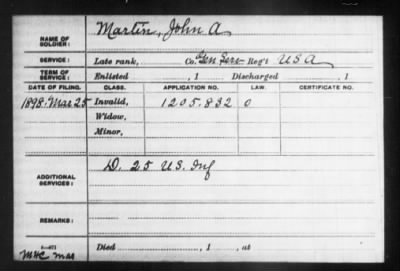 NAME OF SOLDIER: Martin, John A
SERVICE: Late rank, Co. Gen Serv Reg't USA
TERM OF SERVICE: Enlisted , 1 Discharged , 1
DATE OF FILING. CLASS. APPLICATION NO. LAW. CERTIFICATE NO.
1898, Mar 25 Invalid, 1205.832 0
Widow,
Minor,
ADDITIONAL SERVICES: D. 25 U.S. Inf
REMARKS:
Died , 1 , at